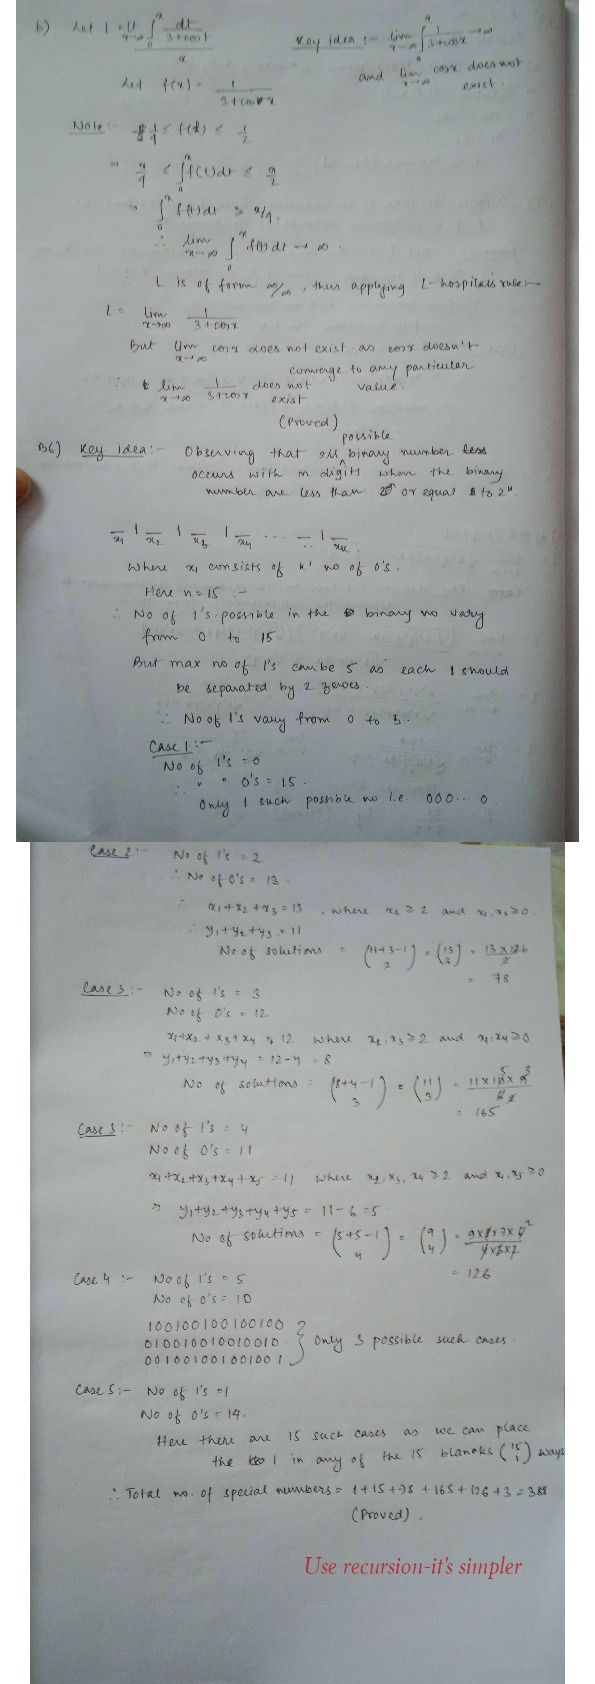 b) Let I = lt x→∞ ∫₀ˣ dt/(3+cost) / x
Key idea :- lim x→∞ ∫₀ˣ 1/(3+cosx) → ∞
and lim x→∞ cosx does not exist.
Let f(x) = 1/(3+cosx)
Note:- 1/4 ≤ f(t) ≤ 1/2
⇒ x/4 ≤ ∫₀ˣ f(t)dt ≤ x/2
⇒ ∫₀ˣ f(t)dt ≥ x/4.
∴ lim x→∞ ∫₀ˣ f(t)dt → ∞.
L is of form ∞/∞, thus applying L-hospital's rule:-
L = lim x→∞ 1/(3+cosx)
But lim x→∞ cosx does not exist as cosx doesn't
converge to any particular
value.
∴ lim x→∞ 1/(3+cosx) does not exist
(Proved)
B6) Key idea:- Observing that all possible binary number
occurs with n digits when the binary
number are less than or equal to 2ⁿ.
x₁ 1 x₂ 1 x₃ 1 x₄ ... 1 xₖ
Where x₁ consists of k' no of 0's.
Here n=15 :-
∴ No of 1's possible in the binary no vary
from 0 to 15
But max no of 1's can be 5 as each 1 should
be separated by 2 zeroes.
∴ No of 1's vary from 0 to 5.
Case 1:-
No of 1's = 0
∴ " " 0's = 15.
Only 1 such possible no i.e. 000... 0
Case 2:- No of 1's = 2
∴ No of 0's = 13.
∴ x₁+x₂+x₃=13, where x₂≥2 and x₁,x₃≥0
∴ y₁+y₂+y₃=11
No of solutions = (11+3-1 2) = (13 2) = 13×12 6/2
= 78
Case 3:- No of 1's = 3
No of 0's = 12
x₁+x₂+x₃+x₄ = 12 where x₂,x₃≥2 and x₁,x₄≥0
⇒ y₁+y₂+y₃+y₄ = 12-4 = 8
No of solutions = (8+4-1 3) = (11 3) = 11×10 5×9 3/6 2
= 165
Case 3:- No of 1's = 4
No of 0's = 11
x₁+x₂+x₃+x₄+x₅=11 where x₂,x₃,x₄≥2 and x₁,x₅≥0
⇒ y₁+y₂+y₃+y₄+y₅ = 11-6=5
No of solutions = (5+5-1 4) = (9 4) = 9×8×7×6 2/4×3×2
= 126
Case 4:- No of 1's = 5
No of 0's = 10
100100100100100
010010010010010 } Only 3 possible such cases.
001001001001001
Case 5:- No of 1's =1
No of 0's = 14.
Here there are 15 such cases as we can place
the 1 in any of the 15 blancks (15 1) ways
∴ Total no. of special numbers = 1+15+78+165+126+3=388
(Proved).
Use recursion-it's simpler